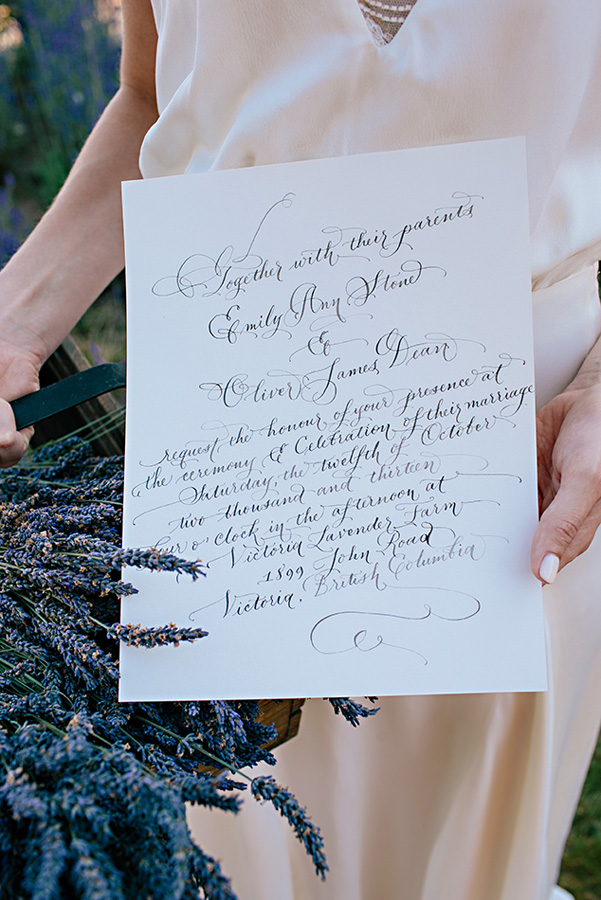 Together with their parents
Emily Ann Stone
&
Oliver James Dean
request the honour of your presence at
the ceremony & Celebration of their marriage
Saturday, the twelfth of October
two thousand and thirteen
o'clock in the afternoon at
Victoria Lavender Farm
1899 John Road
Victoria, British Columbia